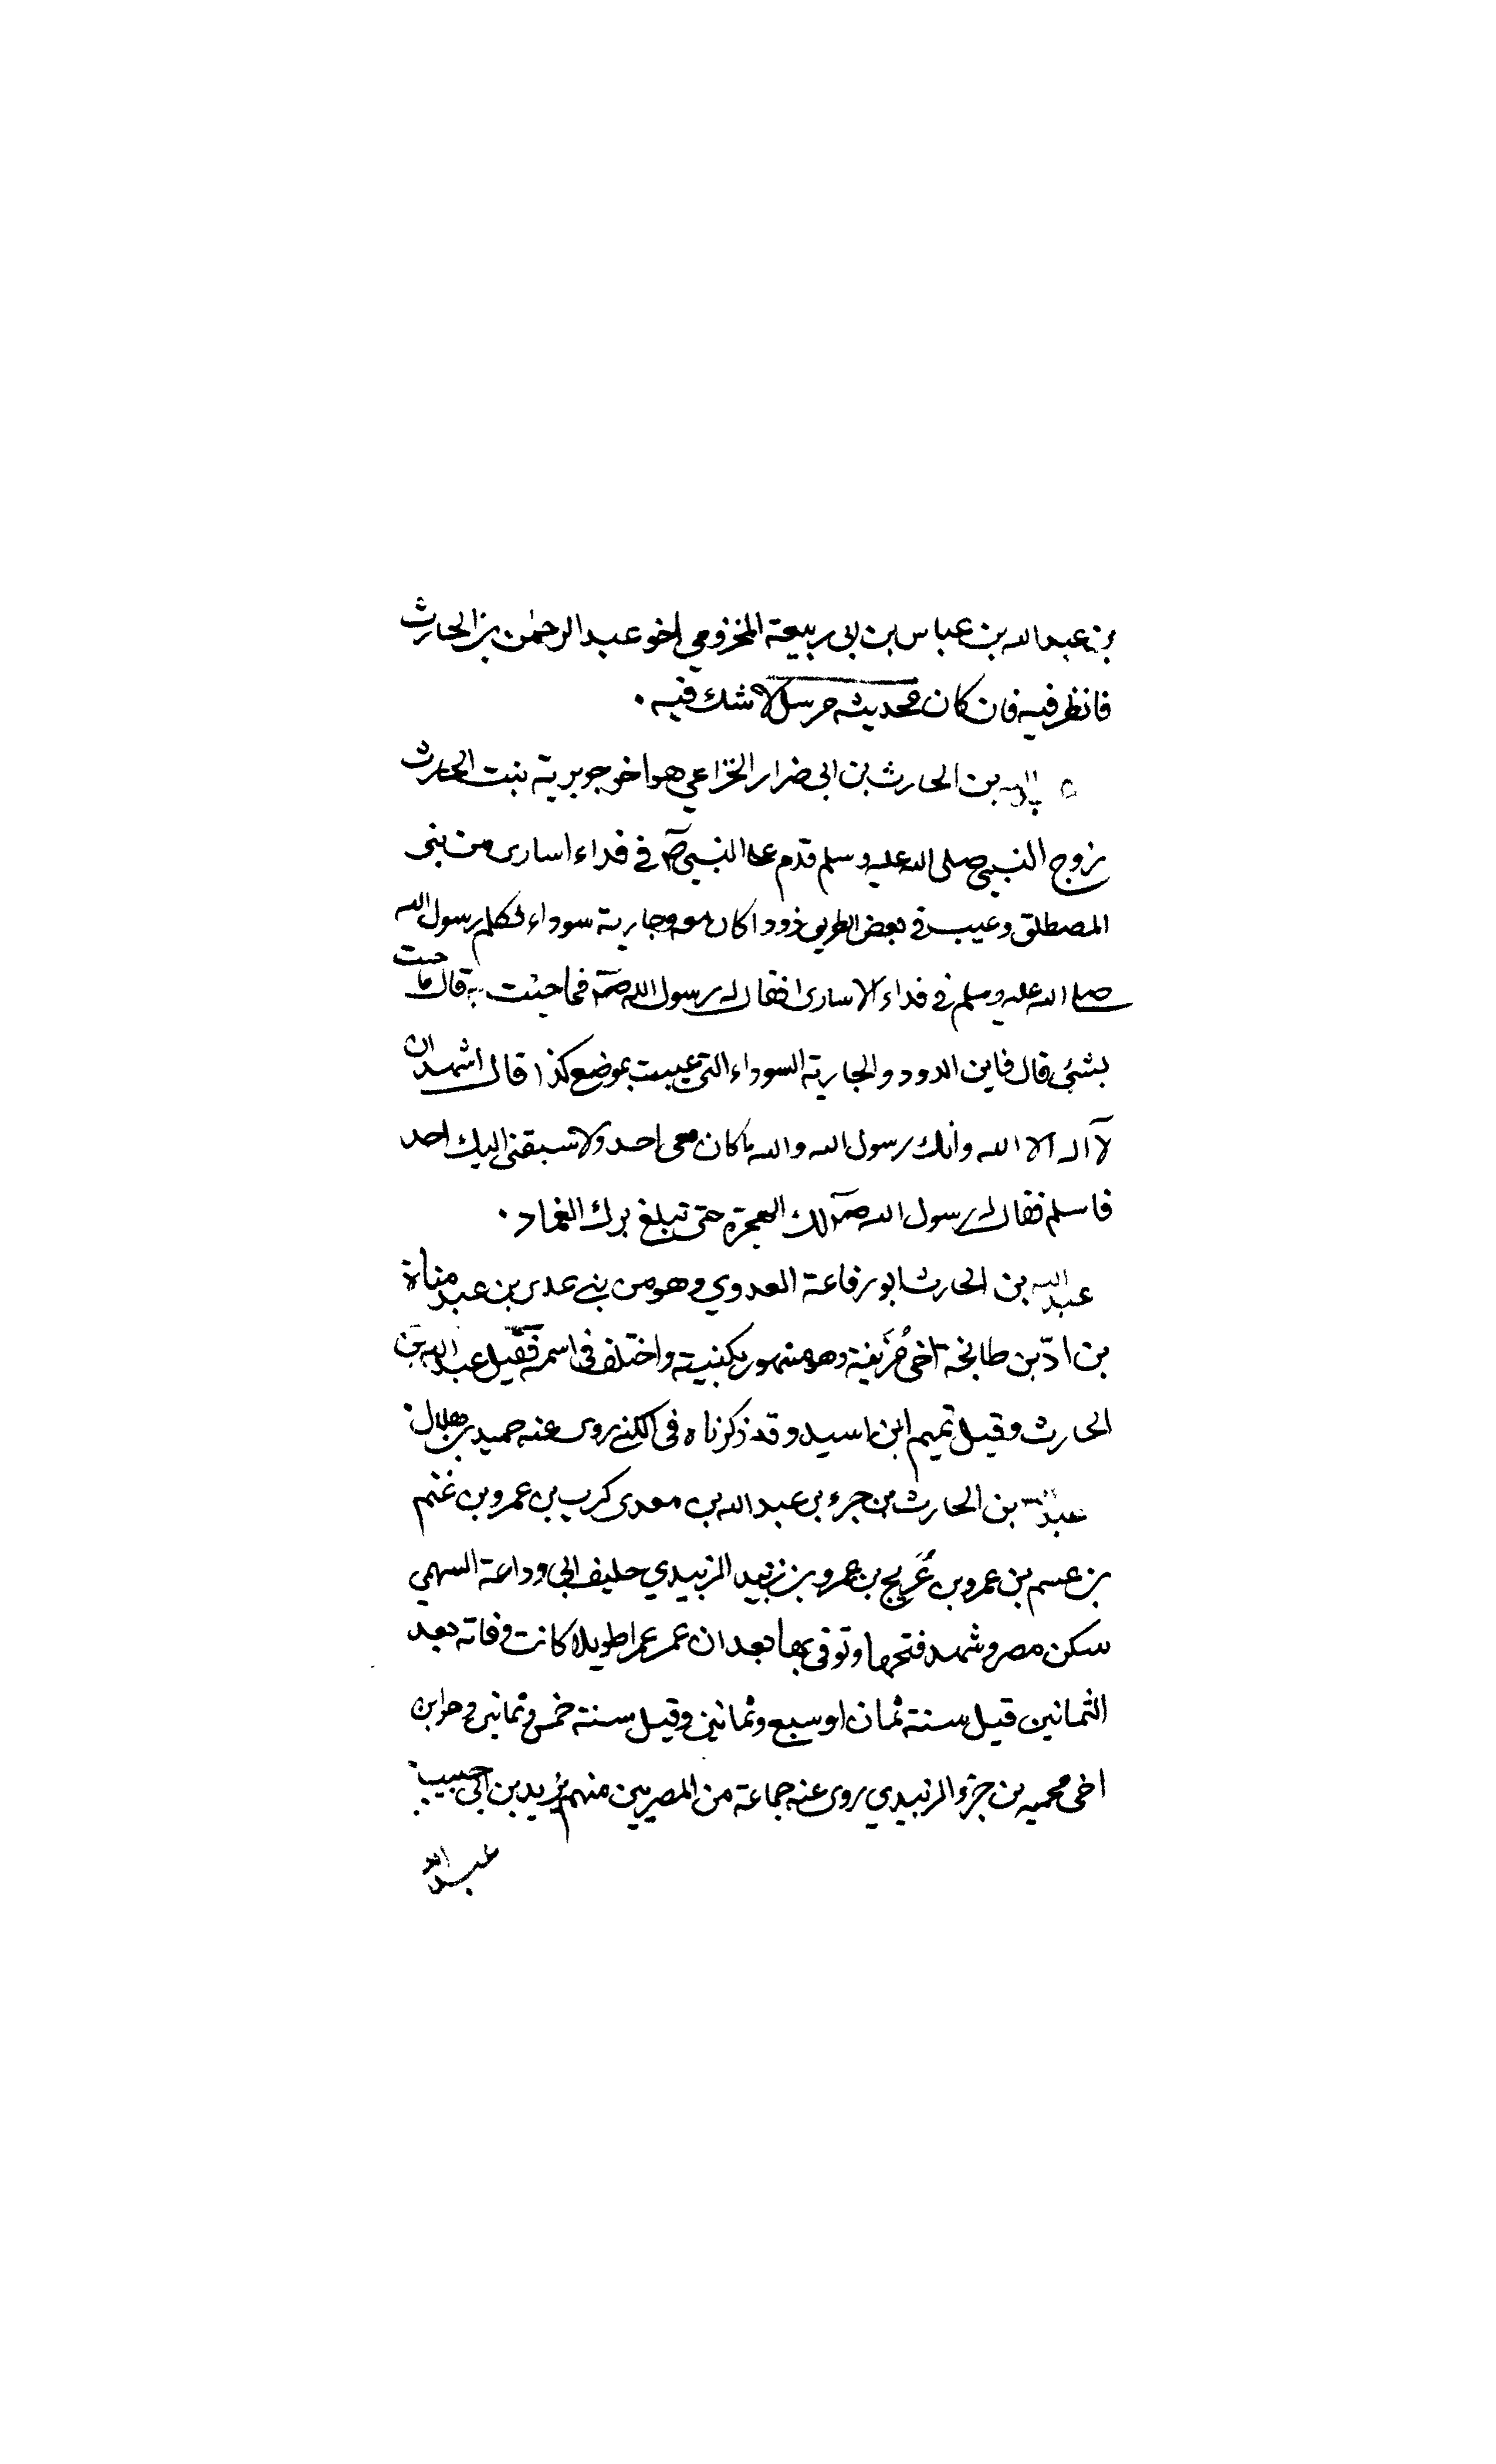 بن عبد الله بن عباس بن ابي ربيعة المخزومي اخو عبد الرحمن بن الحارث
فانظر فيه فان كان فحديثه مرسل لا شك فيه .
الله بن الحارث بن ابي ضرار الخزاعي هو اخو جويرية بنت الحارث
زوج النبي صلى الله عليه وسلم قدم على النبي صم في فداء اسارى من بني
المصطلق وغيب في بعض الطريق ذودا كان معه وجارية سوداء فكلم رسول الله
صلى الله عليه وسلم في فداء الاسارى فقال له رسول الله صم فما جئت به قال ما جئت
بشئ قال فاين الدود والجارية السوداء التي غيبت بموضع كذا قال اشهد ان
لا اله الا الله وانك رسول الله والله ما كان معي احد ولا سبقني اليك احد
فاسلم فقال له رسول الله صم لك الهجرة حتى تبلغ برك الغماد .
عبد الله بن الحارث ابو رفاعة العدوي وهو من بني عدى بن عبد مناة
بن ادّ بن طابخة اخى مُزَينة وهو مشهور بكنيته واختلف في اسمه فقيل عبد الله بن
الحارث وقيل تميم ابن اسيد وقد ذكرناه في الكنى روى عنه حميد بن هلال .
عبد الله بن الحارث بن جزء بن عبد الله بن معدى كرب بن عمرو بن غنم
بن عسم بن عمرو بن عُرَيج بن عمرو بن زبيد الزبيدي حليف ابي وداعة السهمي
سكن مصر وشهد فتحها وتوفى بها بعد ان عمر عمرا طويلا كانت وفاته بعد
الثمانين قيل سنة ثمان او سبع وثمانين وقيل سنة خمس وثمانين وهو ابن
اخى محميه بن جزء الزبيدي روى عنه جماعة من المصريين منهم يزيد بن ابي حبيب .
عبد الله